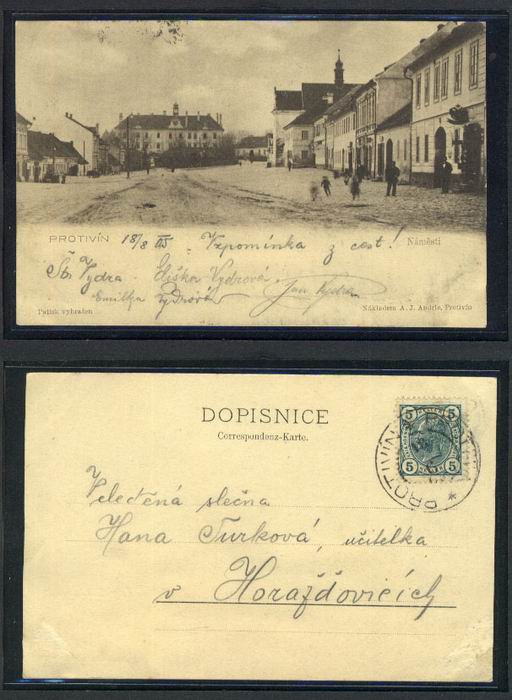 PROTIVÍN 18/8 05. Vzpomínka z cest! Náměstí
Vydra Eliška Vydrová
Emilka Vydrová Jan Vydra
Patisk vyhrazen Nákladem A. J. Andrle, Protivín
DOPISNICE
Correspondenz-Karte.
5 5
5 5
PROTIVIN
Veletěná slečna
Hana Turková, učitelka
v Horažďovicích